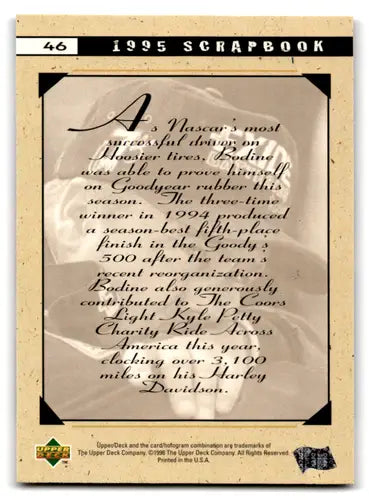 46
1995 SCRAPBOOK
As Nascar's most
successful driver on
Hoosier tires, Bodine
was able to prove himself
on Goodyear rubber this
season. The three-time
winner in 1994 produced
a season-best fifth-place
finish in the Goody's
500 after the team's
recent reorganization.
Bodine also generously
contributed to The Coors
Light Kyle Petty
Charity Ride Across
America this year,
clocking over 3,100
miles on his Harley
Davidson.
UPPER
DECK
TM
Upper Deck and the card/hologram combination are trademarks of
The Upper Deck Company. ©1996 The Upper Deck Company. All Rights Reserved.
Printed in the U.S.A.